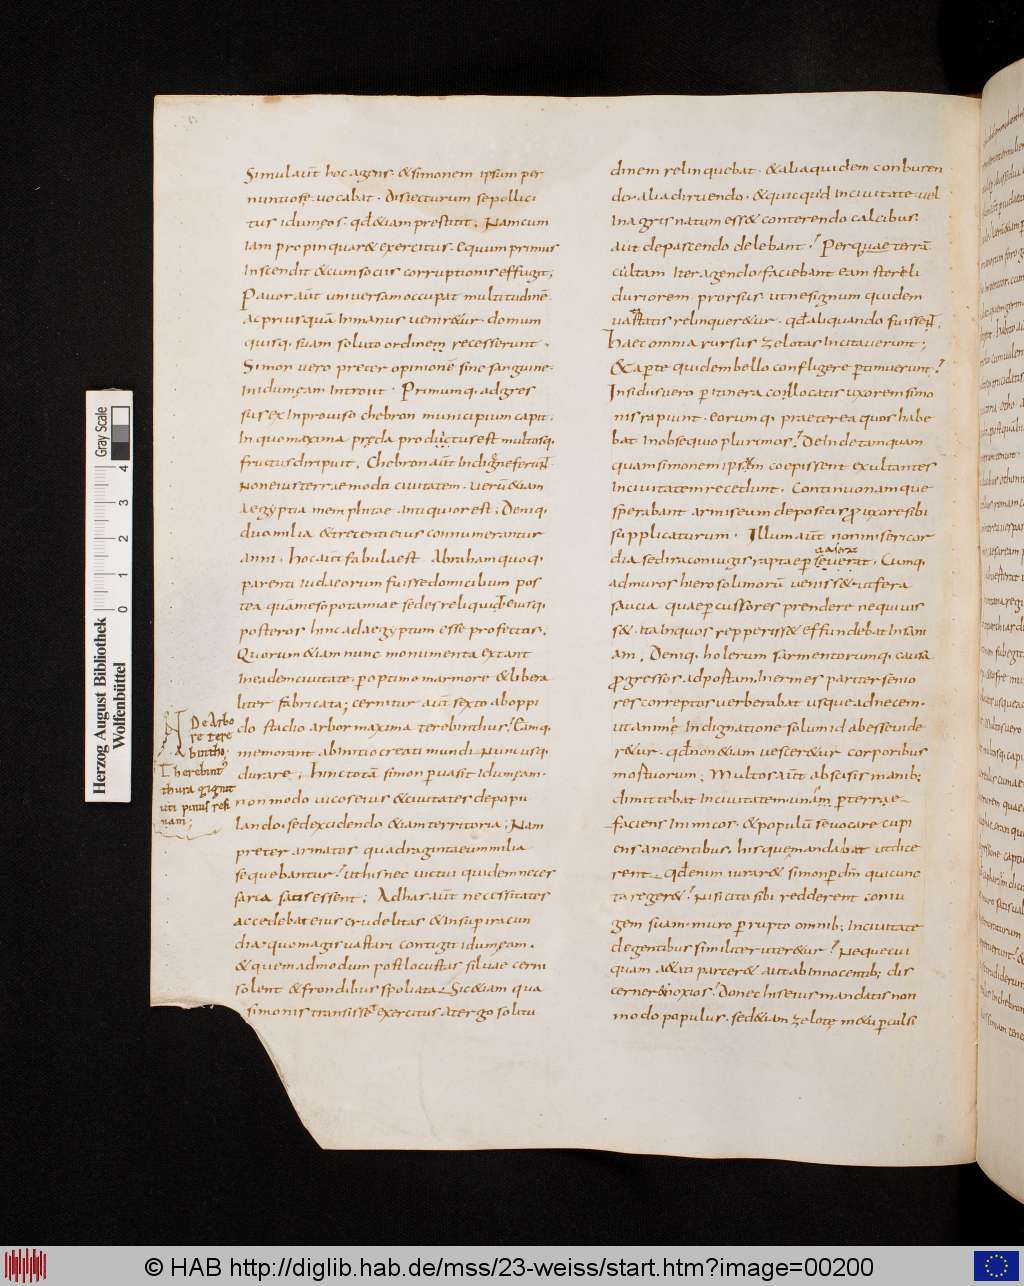 Simulaūt hoc agens · &simonem ipsum per
nuntiose · uocabat · Disiecturum se pollici
tus idumeos · qđ&iam prestitit; Namcum
Iam propinquar& exercitus · equum primus
Inscendit &cum sociis corruptionis effugit;
Pauor aūt uniuersam occupat multitudinē ·
ac priusquā Inmanus uenir&ur · domum
quisq· suam soluto ordinem recesserunt ·
Simon uero preter opinionē sine sanguine
Inidumęam Introiit · Primumq· adgres
sus ex Inprouiso chebron municipium capit ·
In quo maxima pręda productus est multosq·
fructus diripuit · Chebron aūt
Non eius terrae modo ciuitatem · uerū&iam
aegyptia memphitae antiquior est; Deniq·
duo milia & trecenti eius connumerantur
anni · hoc aūt fabula est Abraham quoq·
parenti iudaeorum fuisse domicilium pos
tea quā mesopotamiae sedes reliquid eiusq·
posteros hinc ad aegyptum esse profectos;
Quorum &iam nunc monumenta extant
In eadem ciuitate · poptimo marmore & libera
liter fabricata; cernitur aūt sexto ab oppi
do stadio arbor maxima terebinthus? Eamq·
memorant ab initio creati mundi · nunc usq·
durare; hinc totā simon puasit idumęam ·
non modo uicos eius & ciuitates depopu
lando · sed excidendo &iam territoria; Nam
preter armatos quadraginta eum milia
sequebantur? ut his nec uictui quidem neces
saria satis essent; Ad has aūt necessitates
accedebat eius crudelitas & insup iracun
dia · quo magis uastari contigit idumęam ·
& quemadmodum post locustas siluae cerni
solent & frondibus spoliatae · Sic &iam qua
simonis transisset exercitus atergo solitu
De Arbo
re tere
bintho;
Therebint
thura gignit
uti pinus resi
nam;
dinem relinquebat · & alia quidem conburen
do · alia diruendo · & quicquid Inciuitate uel
In agris natum ess& conterendo calcibus ·
aut depascendo delebant? Per quae terrā
cultam Iter agendo · faciebant eam sterili
duriorem · prorsus ut nesignum quidem
uastatis relinquer&ur · qđ aliquando fuissent;
haec omnia rursus zelotas Incitauerunt;
& aperte quidem bello confligere ptimuerunt?
Insidiis uero p itinera conlocatis uxorem simo
nis rapiunt · eorumq· praeterea quos habe
bat Inobsequio plurimos? Deinde tamquam
quam simonem ipsum coepissent exultantes
Inciuitatem recedunt · Continuo namque
sperabant armis eum depositis p uxore sibi
supplicaturum · Illum aūt non misericor
dia sed ira coniugis raptae pseuerat · Cumq·
ad muros hierosolimorū ueniss& ut fera
saucia quae pcussores prendere nequiuis
s& · Itainquos repperiss& effundebat Insani
am; Deniq· holerum sarmentorumq· causa
progressos ad postam Inermes pariter senio
res correptos uerberabat usque adnecem ·
ut animę Indignatione solum id abesse uide
r&ur · qđ non &iam uescer&ur corporibus
mostuorum; Multos aūt abscisis manib;
dimittebat Inciuitatem unām p terrae
faciens Inimicos · & populū seuocare cupi
ens anocentibus · his que mandabat ut dice
rent qđ enim iurar& simon p dm̄ quicunc
ta reger&? Nisi cito sibi redderent coniu
gem suam · muro prupto omnib; Inciuitate
degentibus similiter uter&ur? Neque cui
quam a&ati parcer& aut ab innocentib; dis
cerner& noxios? Donec his eius mandatis non
modo populus · sed &iam zelotę m&u pculsi
Herzog August Bibliothek
Wolfenbüttel
0 1 2 3 4
Gray Scale
© HAB http://diglib.hab.de/mss/23-weiss/start.htm?image=00200